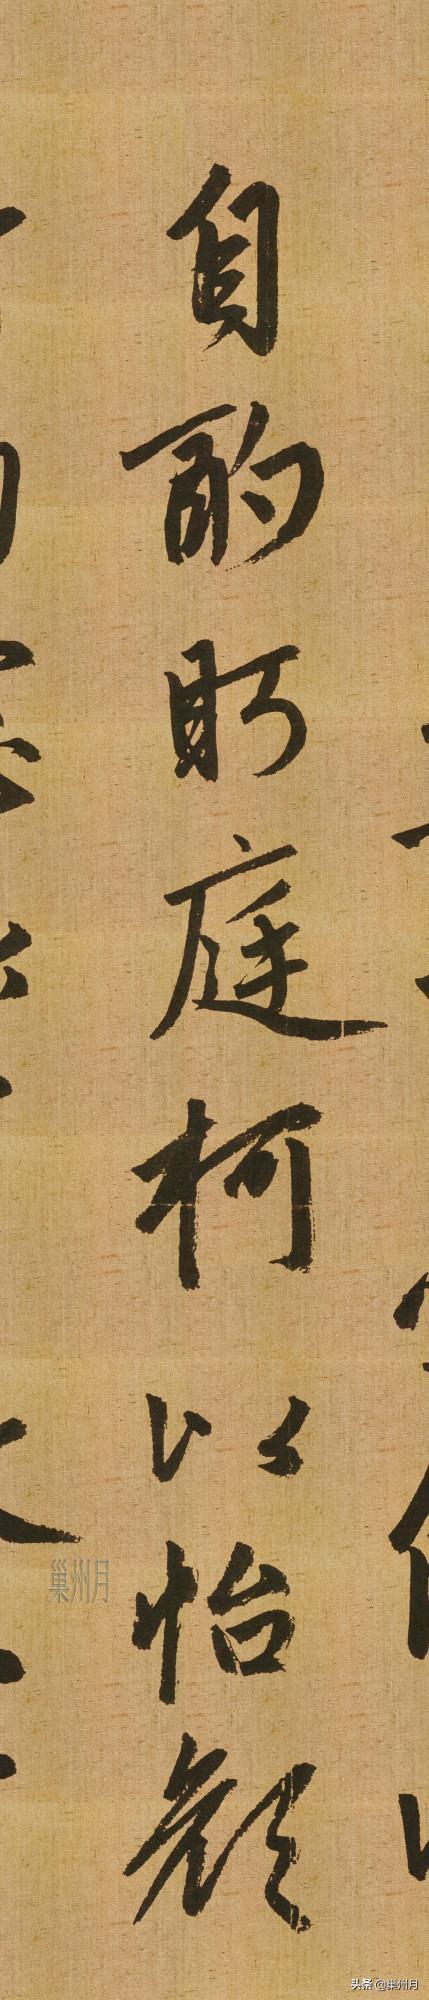 自酌眄庭柯以怡顏
巢州月
头条 @巢州月